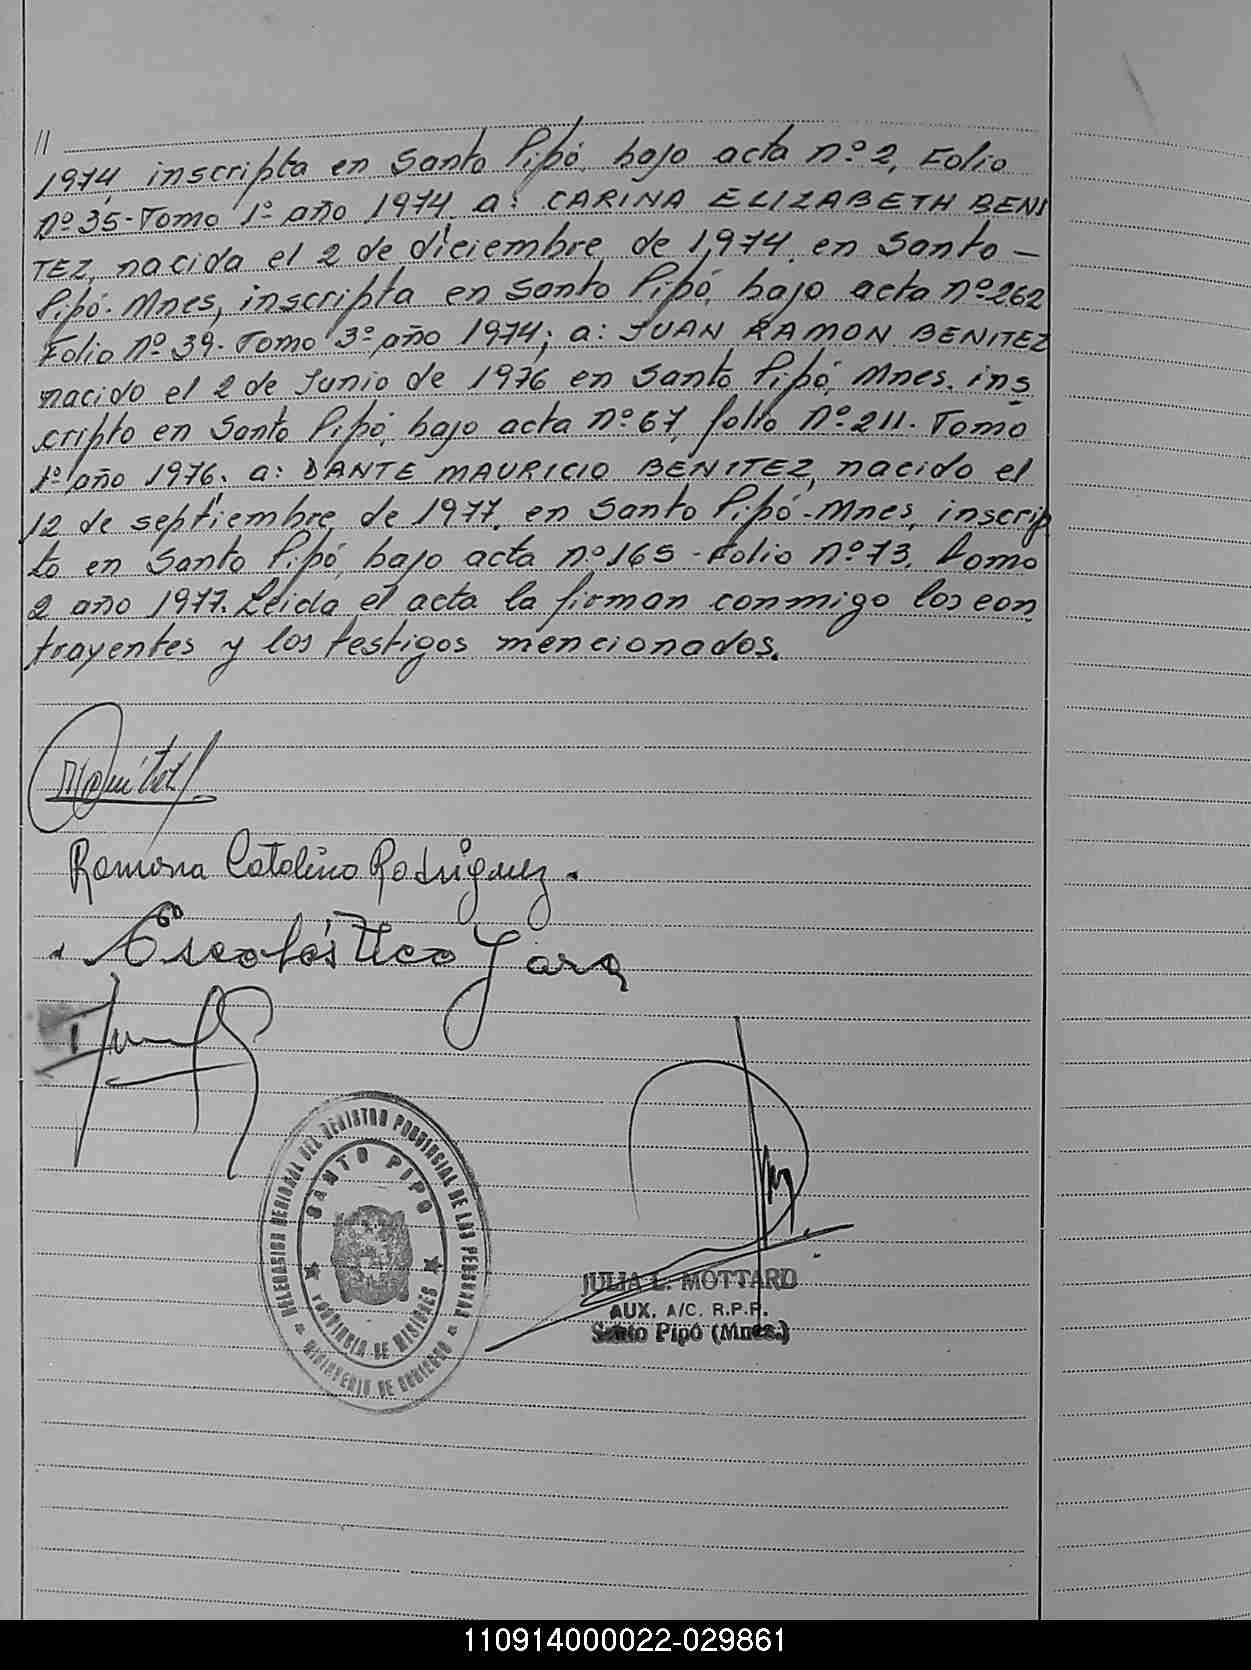 //
1974, inscripta en Santo Pipó, bajo acta nº 2, Folio
Nº 35-Tomo 1º año 1974. a: CARINA ELIZABETH BENI
TEZ, nacida el 2 de diciembre de 1,974, en Santo -
Pipó. Mnes, inscripta en Santo Pipó, bajo acta nº 262
Folio Nº 39. Tomo 3º año 1974; a: JUAN RAMON BENITEZ
nacido el 2 de Junio de 1976 en Santo Pipó, Mnes. ins
cripto en Santo Pipó, bajo acta nº 67, folio Nº 211. Tomo
1º año 1976. a: DANTE MAURICIO BENITEZ, nacido el
12 de septiembre de 1977, en Santo Pipó-Mnes, inscrip
to en Santo Pipó, bajo acta nº 165-Folio Nº 73. Tomo
2 año 1977. Leida el acta la firman conmigo los con
trayentes y los testigos mencionados.
Ramona Catalina Rodriguez.
Escolástico Jara
DELEGACION REGIONAL DEL REGISTRO PROVINCIAL DE LAS PERSONAS
SANTO PIPO
PROVINCIA DE MISIONES
MINISTERIO DE GOBIERNO
JULIA L. MOTTARD
AUX. A/C. R.P.P.
Santo Pipó (Mnes.)
110914000022-029861